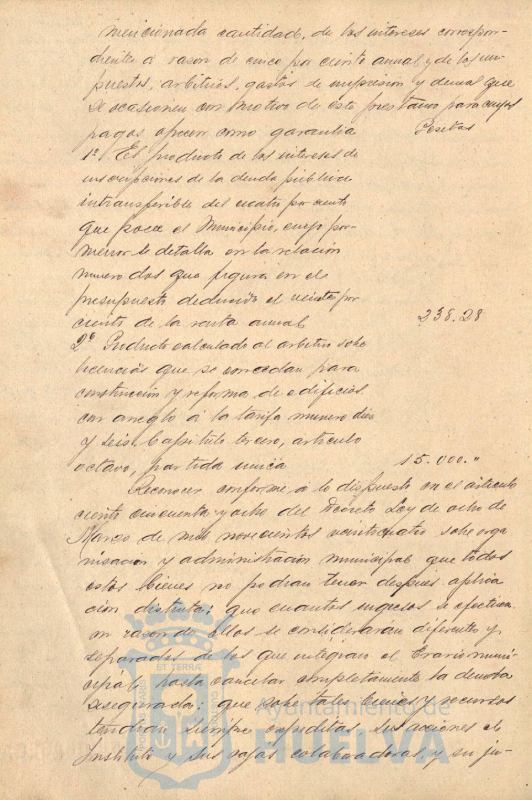 mencionada cantidad, de los intereses correspon-
dientes a razon de cinco por ciento anual y de los im-
puestos, arbitrios, gastos de impresion y demas que
se ocasionen con motivo de este prestamo para cuyos
pagos ofrecen como garantia Pesetas
1º. El producto de los intereses de
inscripciones de la deuda pública
intransferible del cuatro por ciento
que posee el Municipio, cuyo por-
menor se detalla en la relacion
numero dos que figura en el
presupuesto deducido el veinte por
ciento de la renta anual 238.28
2º Producto calculado al arbitrio sobre
licencias que se concedan para
construccion y reforma de edificios
con arreglo á la tarifa numero diez
y seis. Capitulo tercero, articulo
octavo, partida unica 15.000."
Reconocer conforme á lo dispuesto en el articulo
ciento cincuenta y ocho del Decreto Ley de ocho de
Marzo de mil novecientos veinticuatro sobre orga
nizacion y administracion municipal que todos
estos bienes no podran tener despues aplica
cion distinta; que cuantos ingresos se efectuen
en razon de ellos se considerarán diferentes y
separados de los que integran el Erario muni-
cipal hasta cancelar completamente la deuda
asegurada; que sobre tales bienes y recursos
tendran siempre expeditas sus acciones el
Instituto y sus cajas colaboradoras, y en ju-
Ayuntamiento de
HUELVA